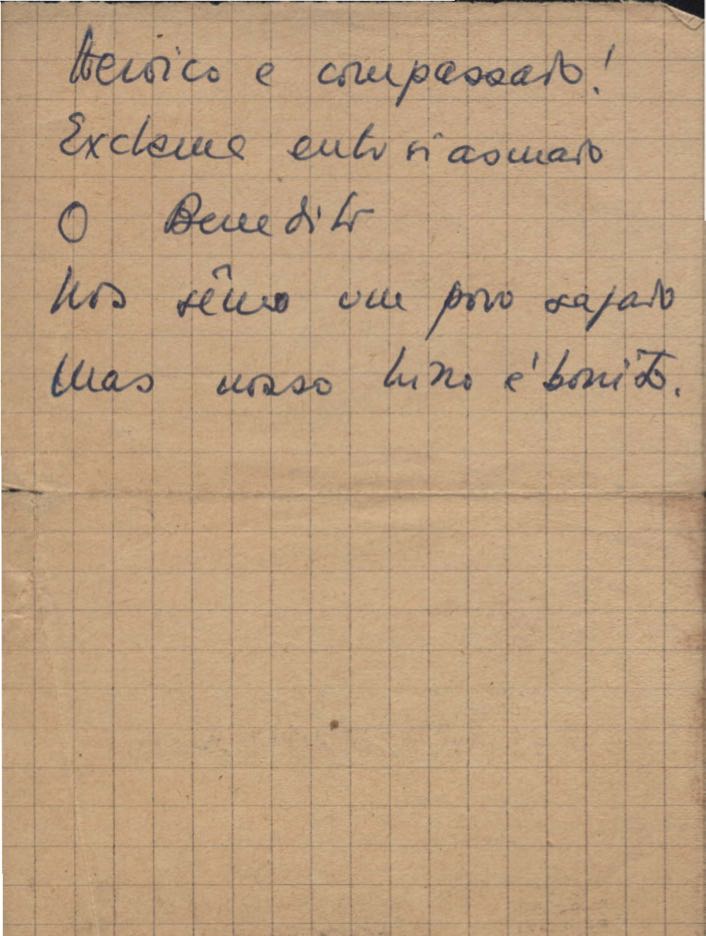 Heroico e compassado!
Exclama entusiasmado
O Benedito
Nós sêmo um povo safado
Mas nosso hino é bonito.